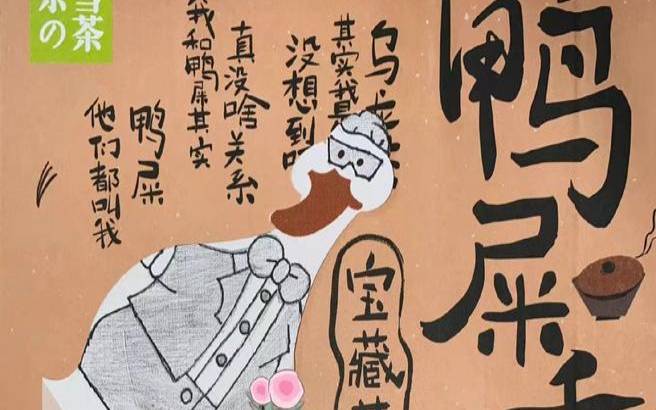 奈雪
の茶
他们都叫我
鸭屎
我和鸭屎其实
真没啥关系
没想到吧
其实我是
乌龙茶
宝藏
鸭屎